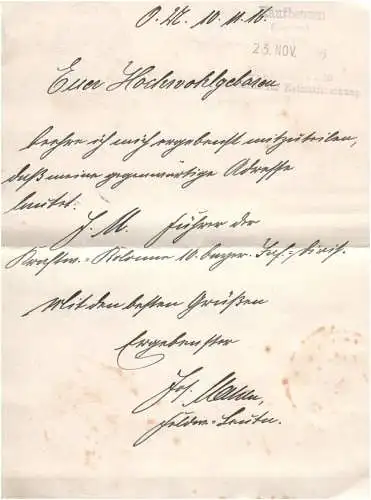 O. U. 10. 11. 16.
Kaufbeuren
23. NOV.
Euer Hochwohlgeboren
beehre ich mich ergebenst mitzuteilen,
daß meine gegenwärtige Adresse
lautet:
J. M. Führer der
Kraftw.-Kolonne 10. bayer. Inf.-Divis.
Mit den besten Grüßen
Ergebenster
Jos.
Feldw.-Leutn.